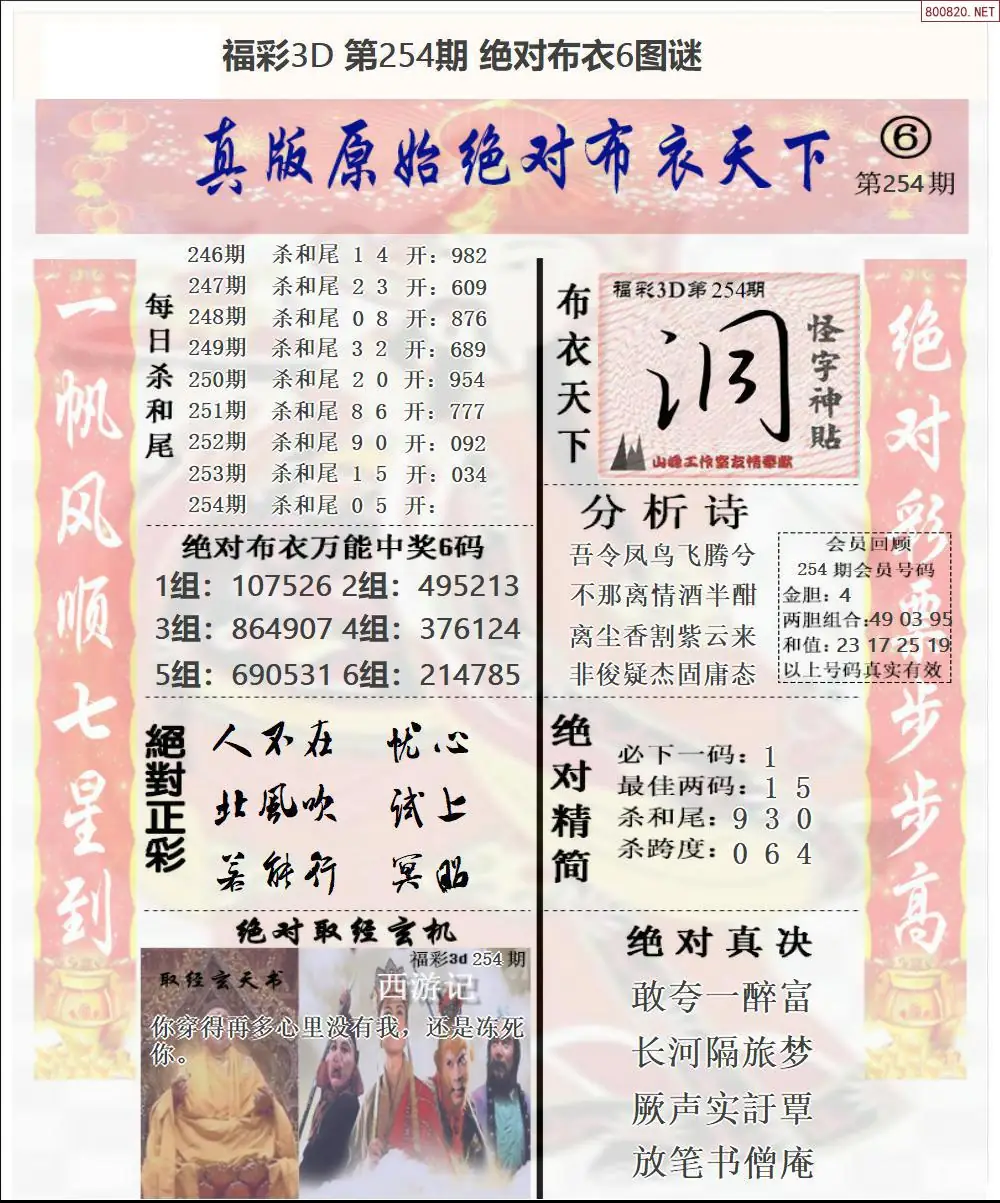 800820.NET
福彩3D 第254期 绝对布衣6图谜
真版原始绝对布衣天下
6
第254期
一帆风顺七星到
每日杀和尾
246期 杀和尾 1 4 开：982
247期 杀和尾 2 3 开：609
248期 杀和尾 0 8 开：876
249期 杀和尾 3 2 开：689
250期 杀和尾 2 0 开：954
251期 杀和尾 8 6 开：777
252期 杀和尾 9 0 开：092
253期 杀和尾 1 5 开：034
254期 杀和尾 0 5 开：
绝对布衣万能中奖6码
1组：107526 2组：495213
3组：864907 4组：376124
5组：690531 6组：214785
絕對正彩
人不在 忧心
北風吹 试上
若能行 冥昭
绝对取经玄机
福彩3d 254期
取经玄天书
西游记
你穿得再多心里没有我，还是冻死
你。
布衣天下
福彩3D第254期
洞
怪字神貼
山峰工作室友情奉献
分析诗
吾令凤鸟飞腾兮
不那离情酒半酣
离尘香割紫云来
非俊疑杰固庸态
会员回顾
254期会员号码
金胆：4
两胆组合:49 03 95
和值：23 17 25 19
以上号码真实有效
绝对精简
必下一码：1
最佳两码：1 5
杀和尾：9 3 0
杀跨度：0 6 4
绝对真决
敢夸一醉富
长河隔旅梦
厥声实訏覃
放笔书僧庵
绝对彩票步步高